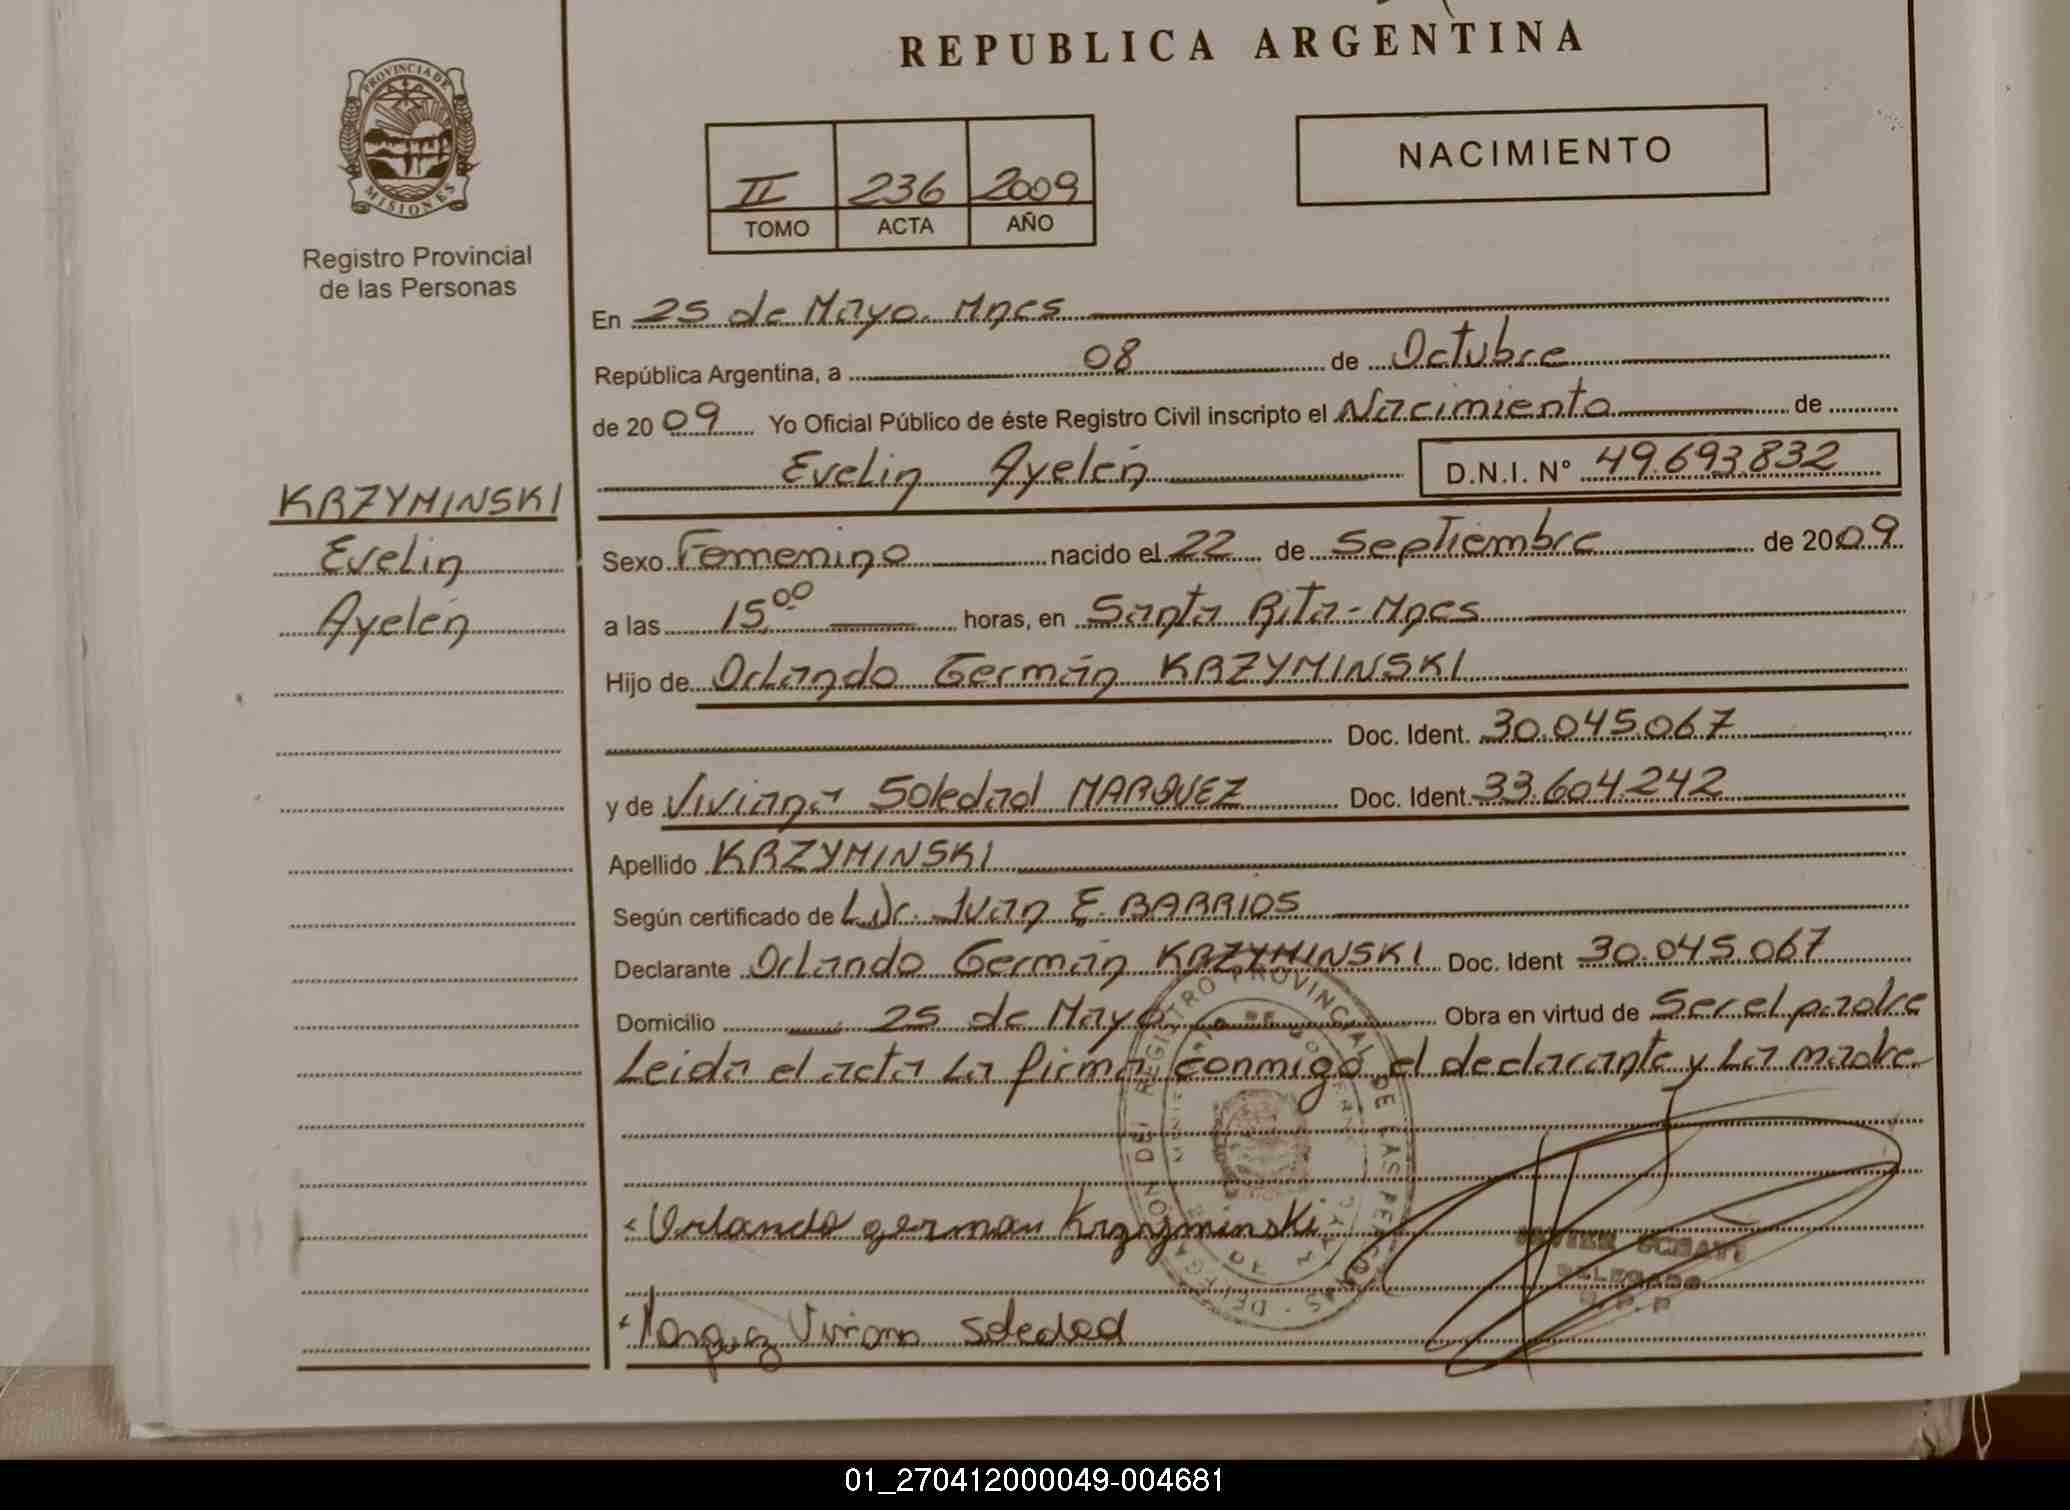 REPUBLICA ARGENTINA
PROVINCIA DE
MISIONES
Registro Provincial
de las Personas
II 236 2009
TOMO ACTA AÑO
NACIMIENTO
KRZYMINSKI
Evelin
Ayelén
En 25 de Mayo. Mnes
República Argentina, a 08 de Octubre
de 2009 Yo Oficial Público de éste Registro Civil inscripto el Nacimiento de
Evelin Ayelén D.N.I. N° 49.693.832
Sexo Femenino nacido el 22 de Septiembre de 2009
a las 15,00 horas, en Santa Rita-Mnes
Hijo de Orlando Germán KRZYMINSKI
Doc. Ident. 30.045.067
y de Viviana Soledad MARQUEZ Doc. Ident. 33.604.242
Apellido KRZYMINSKI
Según certificado de Juan E. BARRIOS
Declarante Orlando Germán KRZYMINSKI Doc. Ident 30.045.067
Domicilio 25 de Mayo Obra en virtud de Ser el padre
Leida el acta La firman conmigo el declarante y La madre.
REGISTRO PROVINCIAL DE LAS PERSONAS
Orlando german Krzyminski
Viviana Soledad
DELEGADO
R.P.P
01_270412000049-004681